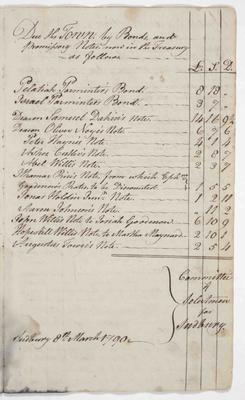 Due the Town by Bonds and
promissory Notes now in the Treasury
as follows
£. S. D.
Pelatiah Parmenter's Bond 8 18 -
Israel Parmenter's Bond 3 7 -
Deacon Samuel Dakin's Note 14 16 9
Deacon Oliver Noyes Note 6 9 6
Peter Haynes Note 4 11
Asher Cutler's Note 2 8
Abel Willis Note 2 3 7
Ithamar Rice's Note from which
Goodenows Rates to be Discounted 1 5 5
Jonas Holden Junr. Note 1 2 11
Aaron Johnson's Note 11 2
Hopn Willis Note to Josiah Goodenow 6 10 9
Hopestill Willis Note to Martha Maynard 2 10 1
Augustus Tower's Note 2 5 4
Committee
of
Selectmen
for
Sudbury
Sudbury 8th March 1790